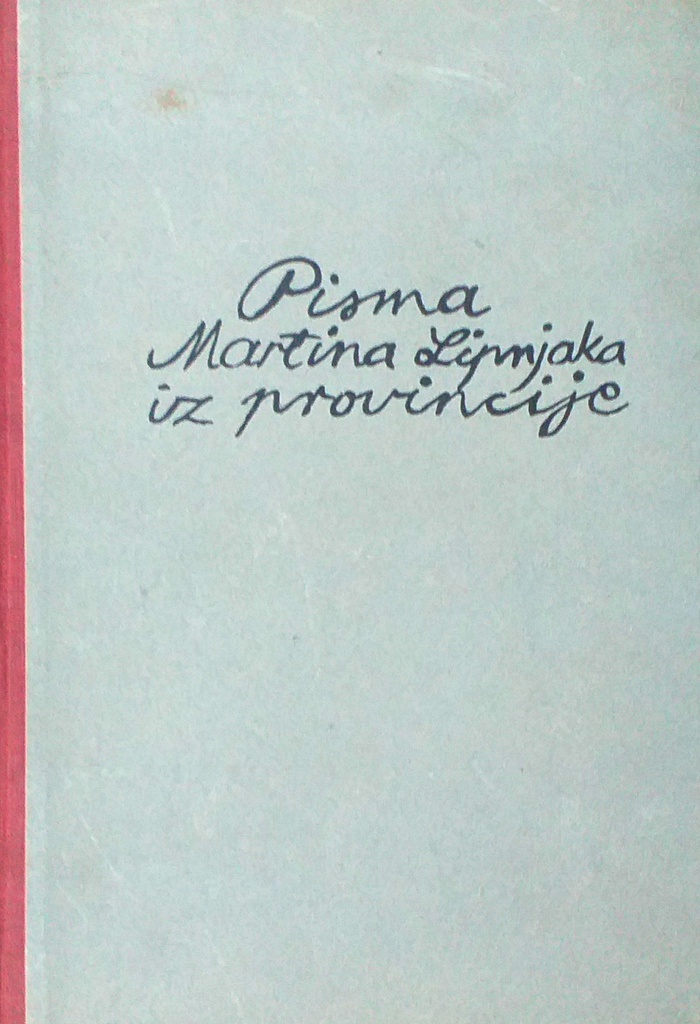 Pisma
Martina Lipnjaka
iz provincije